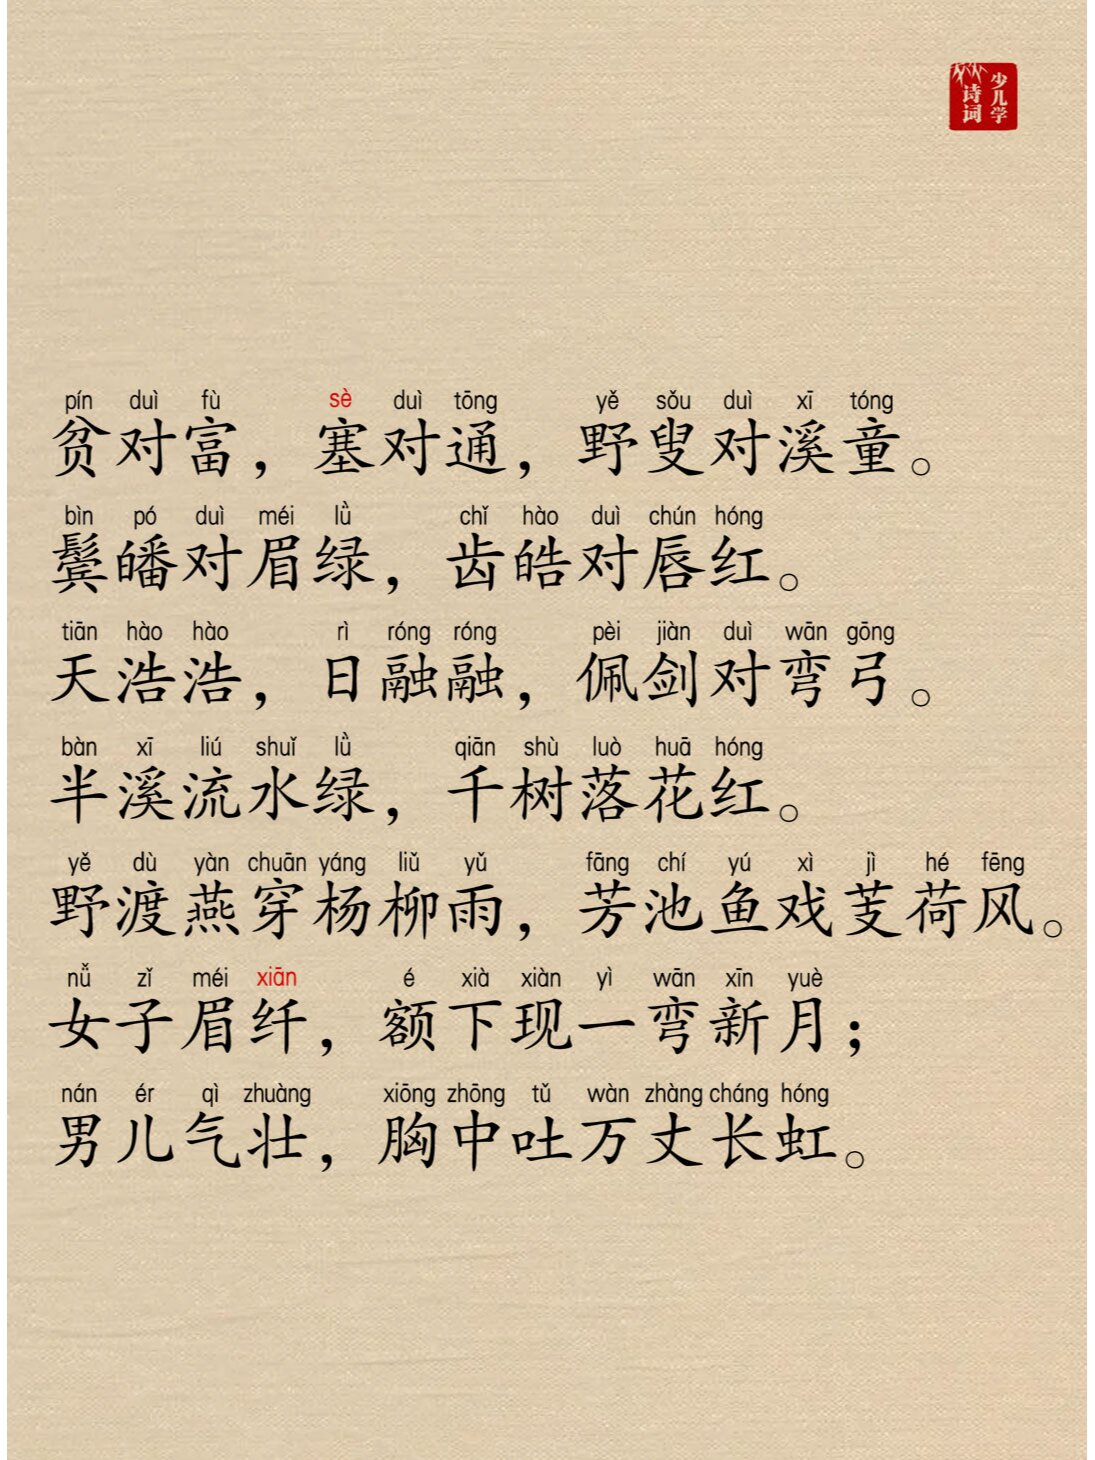 少儿学
诗词
pín duì fù sè duì tōng yě sǒu duì xī tóng
贫对富，塞对通，野叟对溪童。
bìn pó duì méi lǜ chǐ hào duì chún hóng
鬓皤对眉绿，齿皓对唇红。
tiān hào hào rì róng róng pèi jiàn duì wān gōng
天浩浩，日融融，佩剑对弯弓。
bàn xī liú shuǐ lǜ qiān shù luò huā hóng
半溪流水绿，千树落花红。
yě dù yàn chuān yáng liǔ yǔ fāng chí yú xì jì hé fēng
野渡燕穿杨柳雨，芳池鱼戏芰荷风。
nǚ zǐ méi xiān é xià xiàn yì wān xīn yuè
女子眉纤，额下现一弯新月；
nán ér qì zhuàng xiōng zhōng tǔ wàn zhàng cháng hóng
男儿气壮，胸中吐万丈长虹。